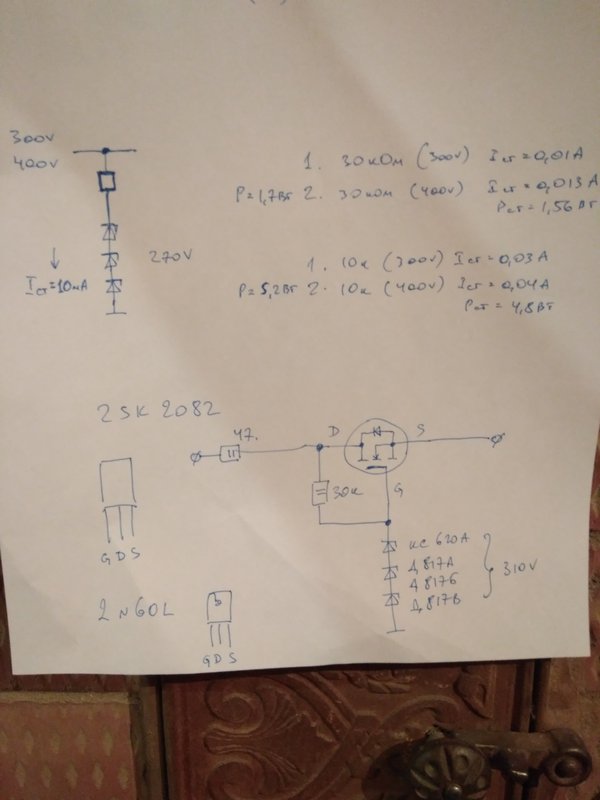 300V
400V
270V
Iст=10мА
1. 30кОм (300V) Iст=0,01А
P=1,7Вт 2. 30кОм (400V) Iст=0,013А
Pст=1,56 Вт
1. 10к (300V) Iст=0,03А
P=5,2Вт 2. 10к (400V) Iст=0,04А
Pст=4,8Вт
2SK 2082
47.
D
S
30к
G
G D S
КС 620А
Д 817А
Д 817Б
Д 817В
310V
2N60L
G D S